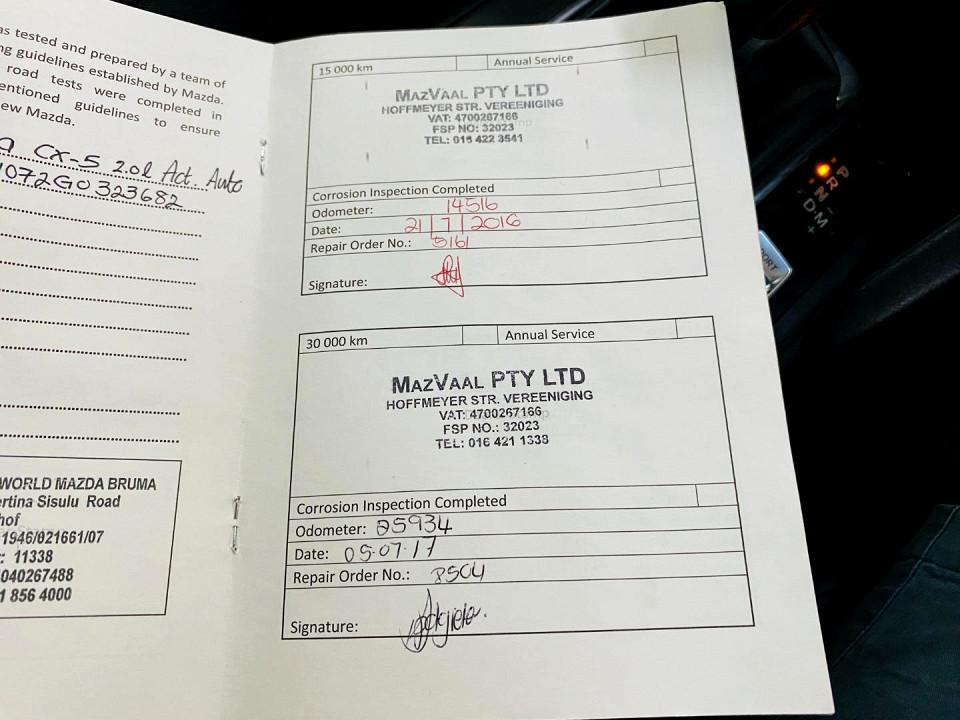 as tested and prepared by a team of
ng guidelines established by Mazda.
road tests were completed in
entioned guidelines to ensure
ew Mazda.
CX-5 2.0l Act. Auto
1072G0323682
WORLD MAZDA BRUMA
ertina Sisulu Road
hof
1946/021661/07
: 11338
040267488
1 856 4000
15 000 km
Annual Service
MAZVAAL PTY LTD
HOFFMEYER STR. VEREENIGING
VAT: 4700267166
FSP NO: 32023
TEL: 016 422 3541
Corrosion Inspection Completed
Odometer: 14516
Date: 21/7/2016
Repair Order No.: 5161
Signature:
30 000 km
Annual Service
MAZVAAL PTY LTD
HOFFMEYER STR. VEREENIGING
VAT: 4700267166
FSP NO.: 32023
TEL: 016 421 1338
Corrosion Inspection Completed
Odometer: 25934
Date: 05-07-17
Repair Order No.: 8504
Signature:
P
R
N
D-M
+